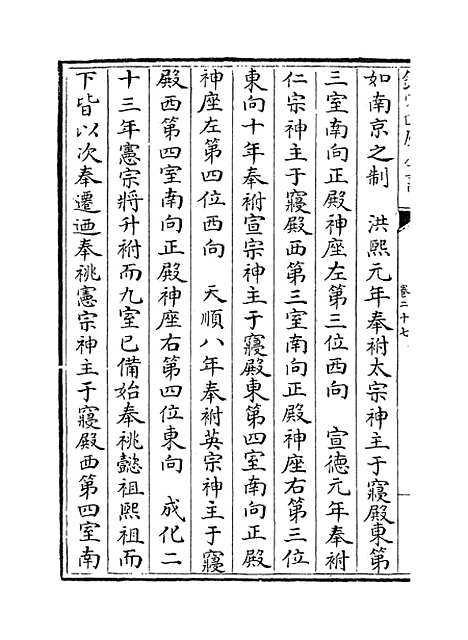 卷二十七
如南京之制　洪熙元年奉祔太宗神主于寢殿東第
三室南向正殿神座左第三位西向　宣德元年奉祔
仁宗神主于寢殿西第三室南向正殿神座右第三位
東向十年奉祔宣宗神主于寢殿東第四室南向正殿
神座左第四位西向　天順八年奉祔英宗神主于寢
殿西第四室南向正殿神座右第四位東向　成化二
十三年憲宗將升祔而九室已備始奉祧懿祖熙祖而
下皆以次奉遷迺奉祧憲宗神主于寢殿西第四室南